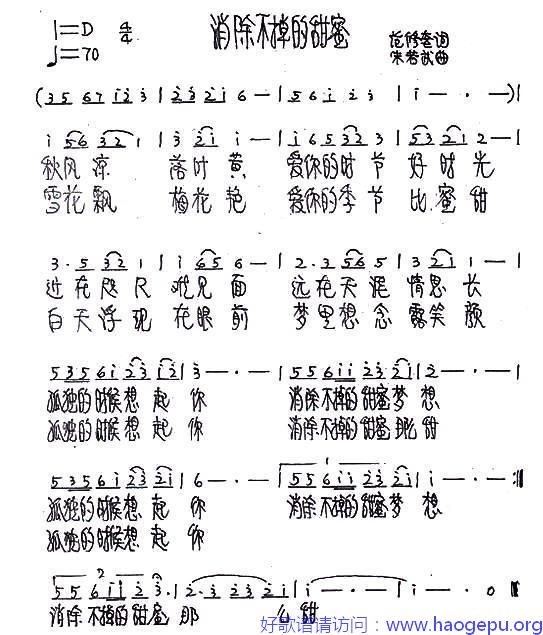 消除不掉的甜蜜
1=D 4/4
♩=70
范修奎词
朱若武曲
(35 67 i2 3 | 2321 6 — | 56 i 2 3 | i — · — )|
i 56 32 1 | 3 21 i — | i 65 32 3 | 53 21 2 — |
秋风凉 落叶黄 爱你的时节好时光
雪花飘 梅花艳 爱你的季节比蜜甜
3·5 32 1 | i 65 6 — | 2·3 56 5 | 3 21 1 — |
近在咫尺难见面 远在天涯情思长
白天浮现在眼前 梦里想念露笑颜
5356i 23 i2 | 3 — · — | 556ii 23 2i | 2 — · — |
孤独的时候想起你 消除不掉的甜蜜梦想
孤独的时候想起你 消除不掉的甜蜜那么甜
5356i 23 2i | 6 — · — | 556ii 23 2i | i — · — :||
孤独的时候想起你 消除不掉的甜蜜梦想
孤独的时候想起你
556ii 2 3· | 2·3 23 2i | i — · — | i — · 0 ||
消除不掉的甜蜜那 么甜
好歌谱请访问：www.haogepu.org